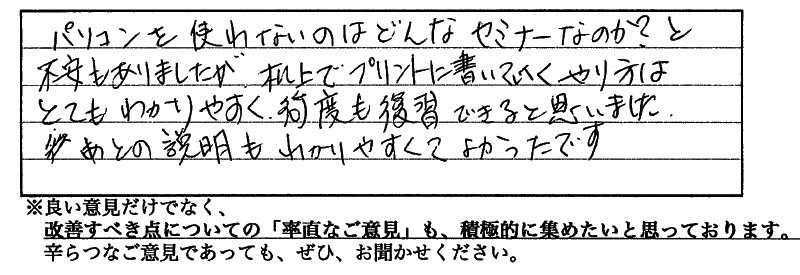 パソコンを使わないのはどんなセミナーなのか？と
不安もありましたが 机上でプリントに書いていくやり方は
とてもわかりやすく、何度も復習できると思いました。
あとの説明もわかりやすくてよかったです
※良い意見だけでなく、
改善すべき点についての「率直なご意見」も、積極的に集めたいと思っております。
辛らつなご意見であっても、ぜひ、お聞かせください。